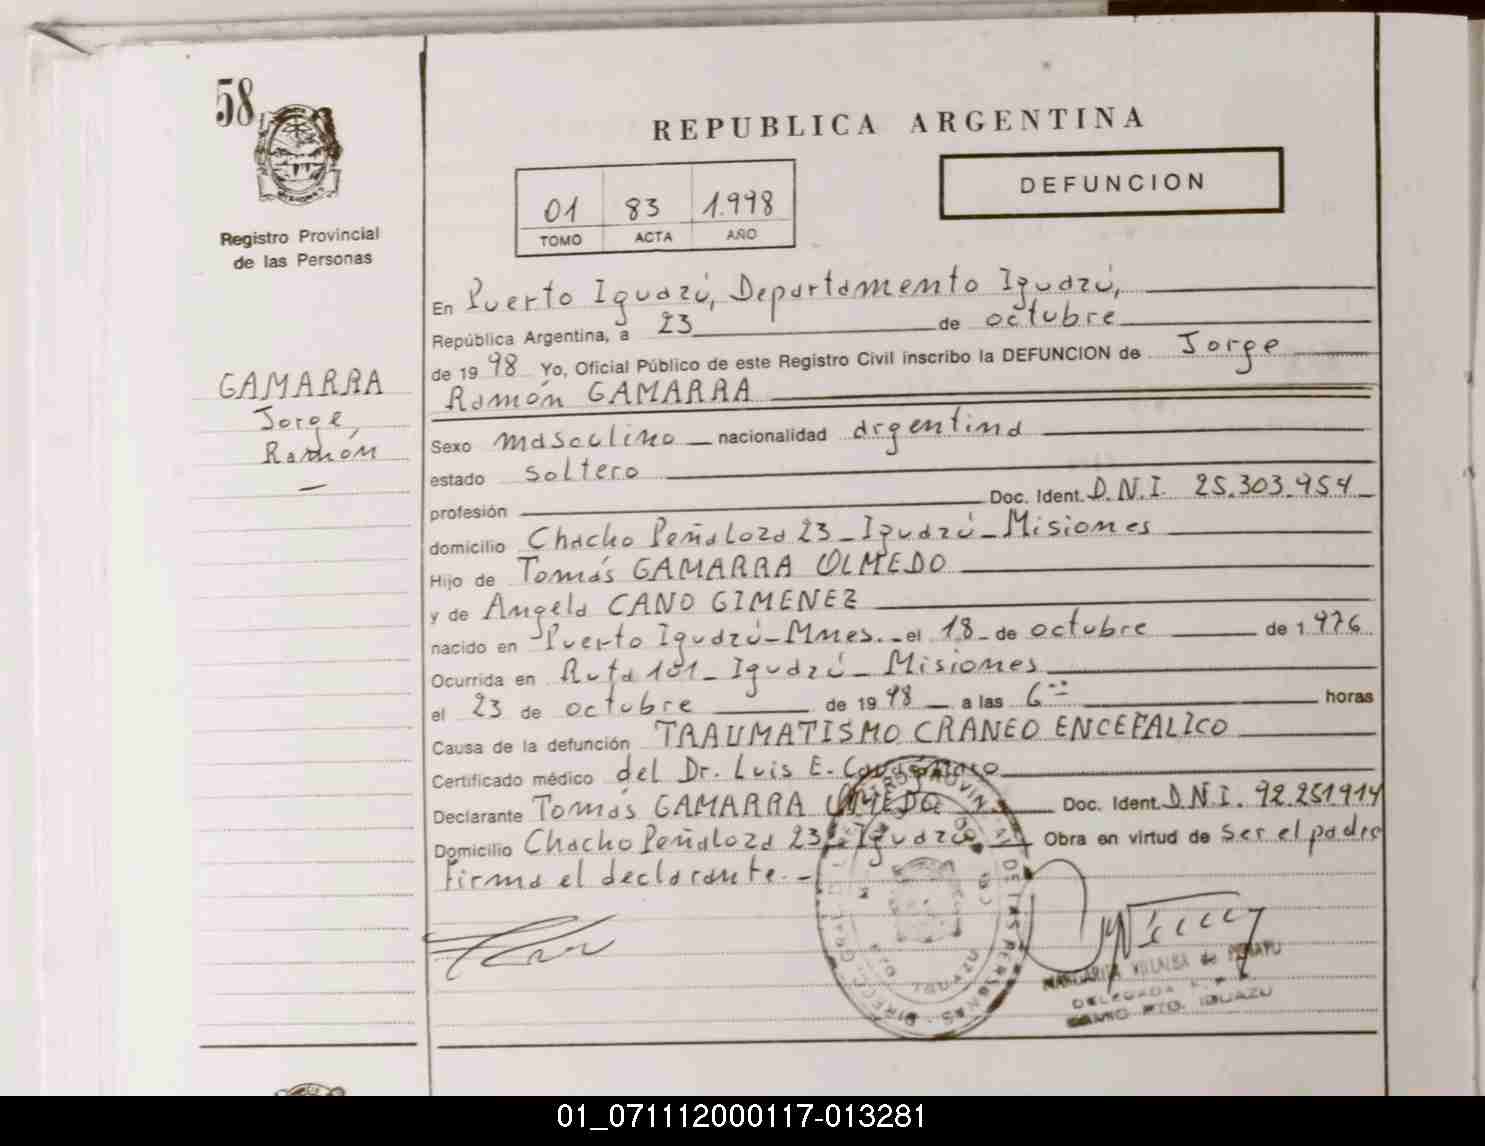 58
REPUBLICA ARGENTINA
DEFUNCION
01 83 1.998
TOMO ACTA AÑO
Registro Provincial
de las Personas
GAMARRA
Jorge,
Ramón
En Puerto Iguazú, Departamento Iguazú,
República Argentina, a 23 de octubre
de 19 98 Yo, Oficial Público de este Registro Civil inscribo la DEFUNCION de Jorge
Ramón GAMARRA
Sexo masculino nacionalidad argentina
estado soltero
profesión Doc. Ident. D.N.I. 25.303.954
domicilio Chacho Peñaloza 23 - Iguazú - Misiones
Hijo de Tomás GAMARRA OLMEDO
y de Angela CANO GIMENEZ
nacido en Puerto Iguazú - Mnes. - el 18 - de octubre de 1.976
Ocurrida en Ruta 101 - Iguazú - Misiones
el 23 de octubre de 19 98 a las 6 horas
Causa de la defunción TRAUMATISMO CRANEO ENCEFALICO
Certificado médico del Dr. Luis E.
Declarante Tomás GAMARRA OLMEDO Doc. Ident. D.N.I. 92.251914
Domicilio Chacho Peñaloza 23 - Iguazú. Obra en virtud de ser el padre
Firma el declarante. -
MARGARITA VILLALBA de
DELEGADA
PTO. IGUAZU
01_071112000117-013281